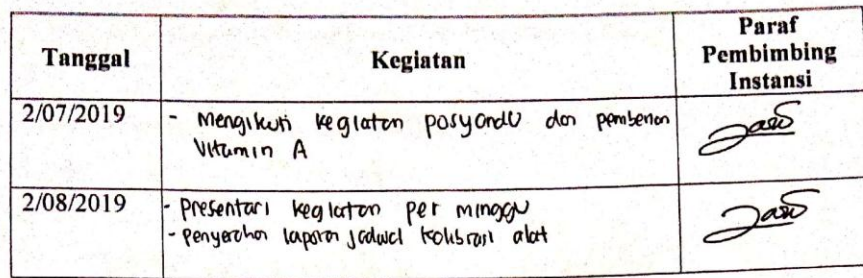 Tanggal
Kegiatan
Paraf
Pembimbing
Instansi
2/07/2019
- Mengikuti kegiatan posyandu dan pemberian
Vitamin A
2/08/2019
- Presentasi kegiatan per minggu
- Penyerahan laporan jadwal kalibrasi alat